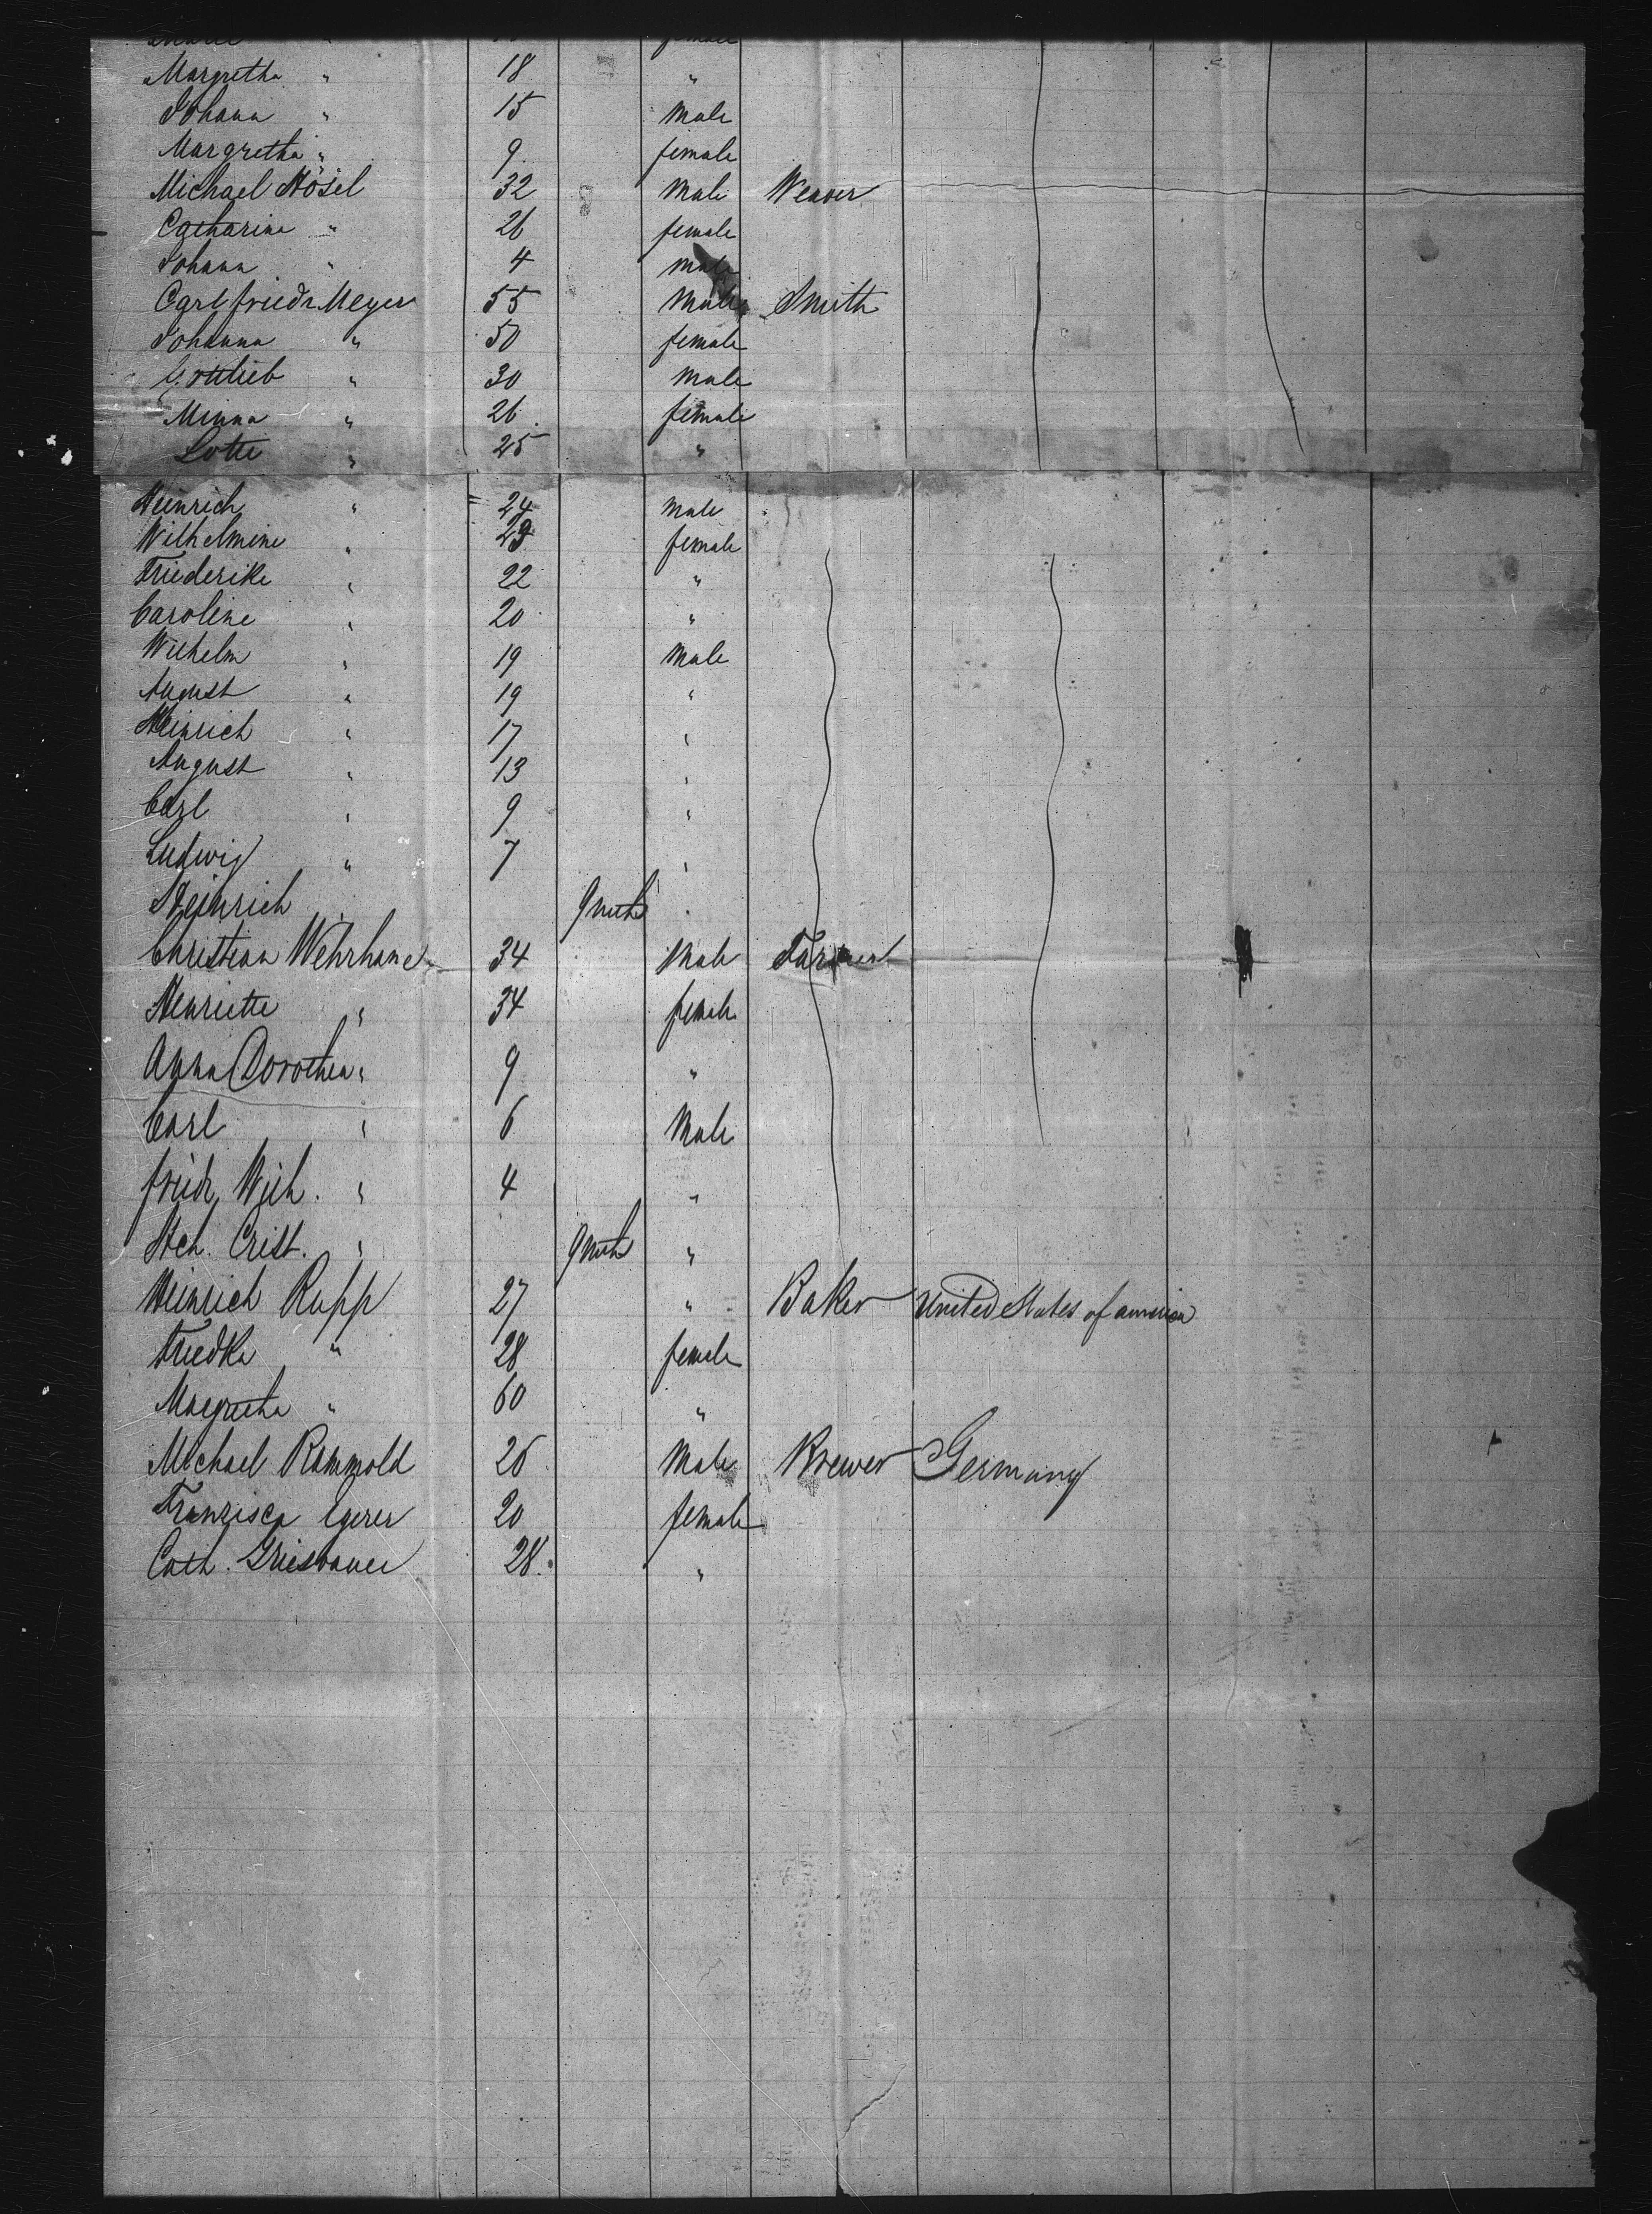 Margretha " 18 "
Johann " 15 Male
Margretha " 9 female
Michael Hösel 32 Male Weaver
Catharine " 26 female
Johann " 4 male
Carl Friedr. Meyer 55 Male Smith
Johanna " 50 female
Gottlieb " 30 Male
Minna " 26 female
Lotte " 25 "
Heinrich " 24 Male
Wilhelmine " 23 female
Friederike " 22 "
Caroline " 20 "
Wilhelm " 19 Male
August " 19 "
Heinrich " 17 "
August " 13 "
Carl " 9 "
Ludwig " 7 "
Heinrich 9 mth "
Christian Wehrhane 34 Male Farmer
Henriette " 34 female
Anna Dorothea " 9 "
Carl " 6 Male
Friedr. Wilh. " 4 "
Hch. Crist. " 9 mth "
Heinrich Rupp 27 " Baker United States of america
Friedke " 28 female
Margretha " 60 "
Michael Rammold 26 Male Brewer Germany
Franzisca Egerer 20 female
Cath. 28. "